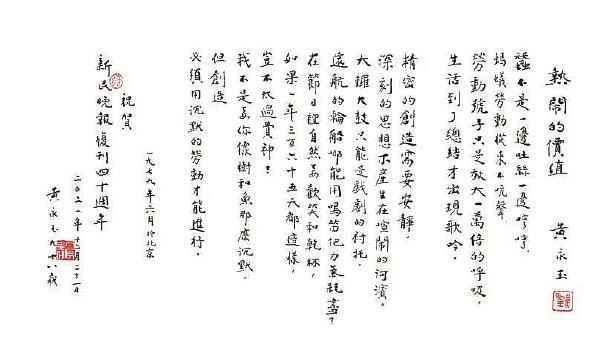 熱鬧的價值 黃永玉
蠶不是一邊吐絲一邊哼哼,
螞蟻勞動從來不吭聲,
勞動號子只是放大一萬倍的呼吸,
生活到了總結才出現歌吟,
精密的創造需要安靜,
深刻的思想不產生在喧鬧的河濱。
大鑼大鼓只能是戲劇的襯托,
遠航的輪船哪能用鳴笛把力氣耗盡?
在節日裡自然要歡笑和乾杯,
如果一年三百六十五天都這樣,
豈不太過費神?
我不是要你像樹和魚那麼沉默,
但創造
必須用沉默的勞動才能進行。
一九七九年六月於北京
祝賀
新民晚報復刊四十週年
二〇二一年十二月二十一日
黃永玉九十八歲